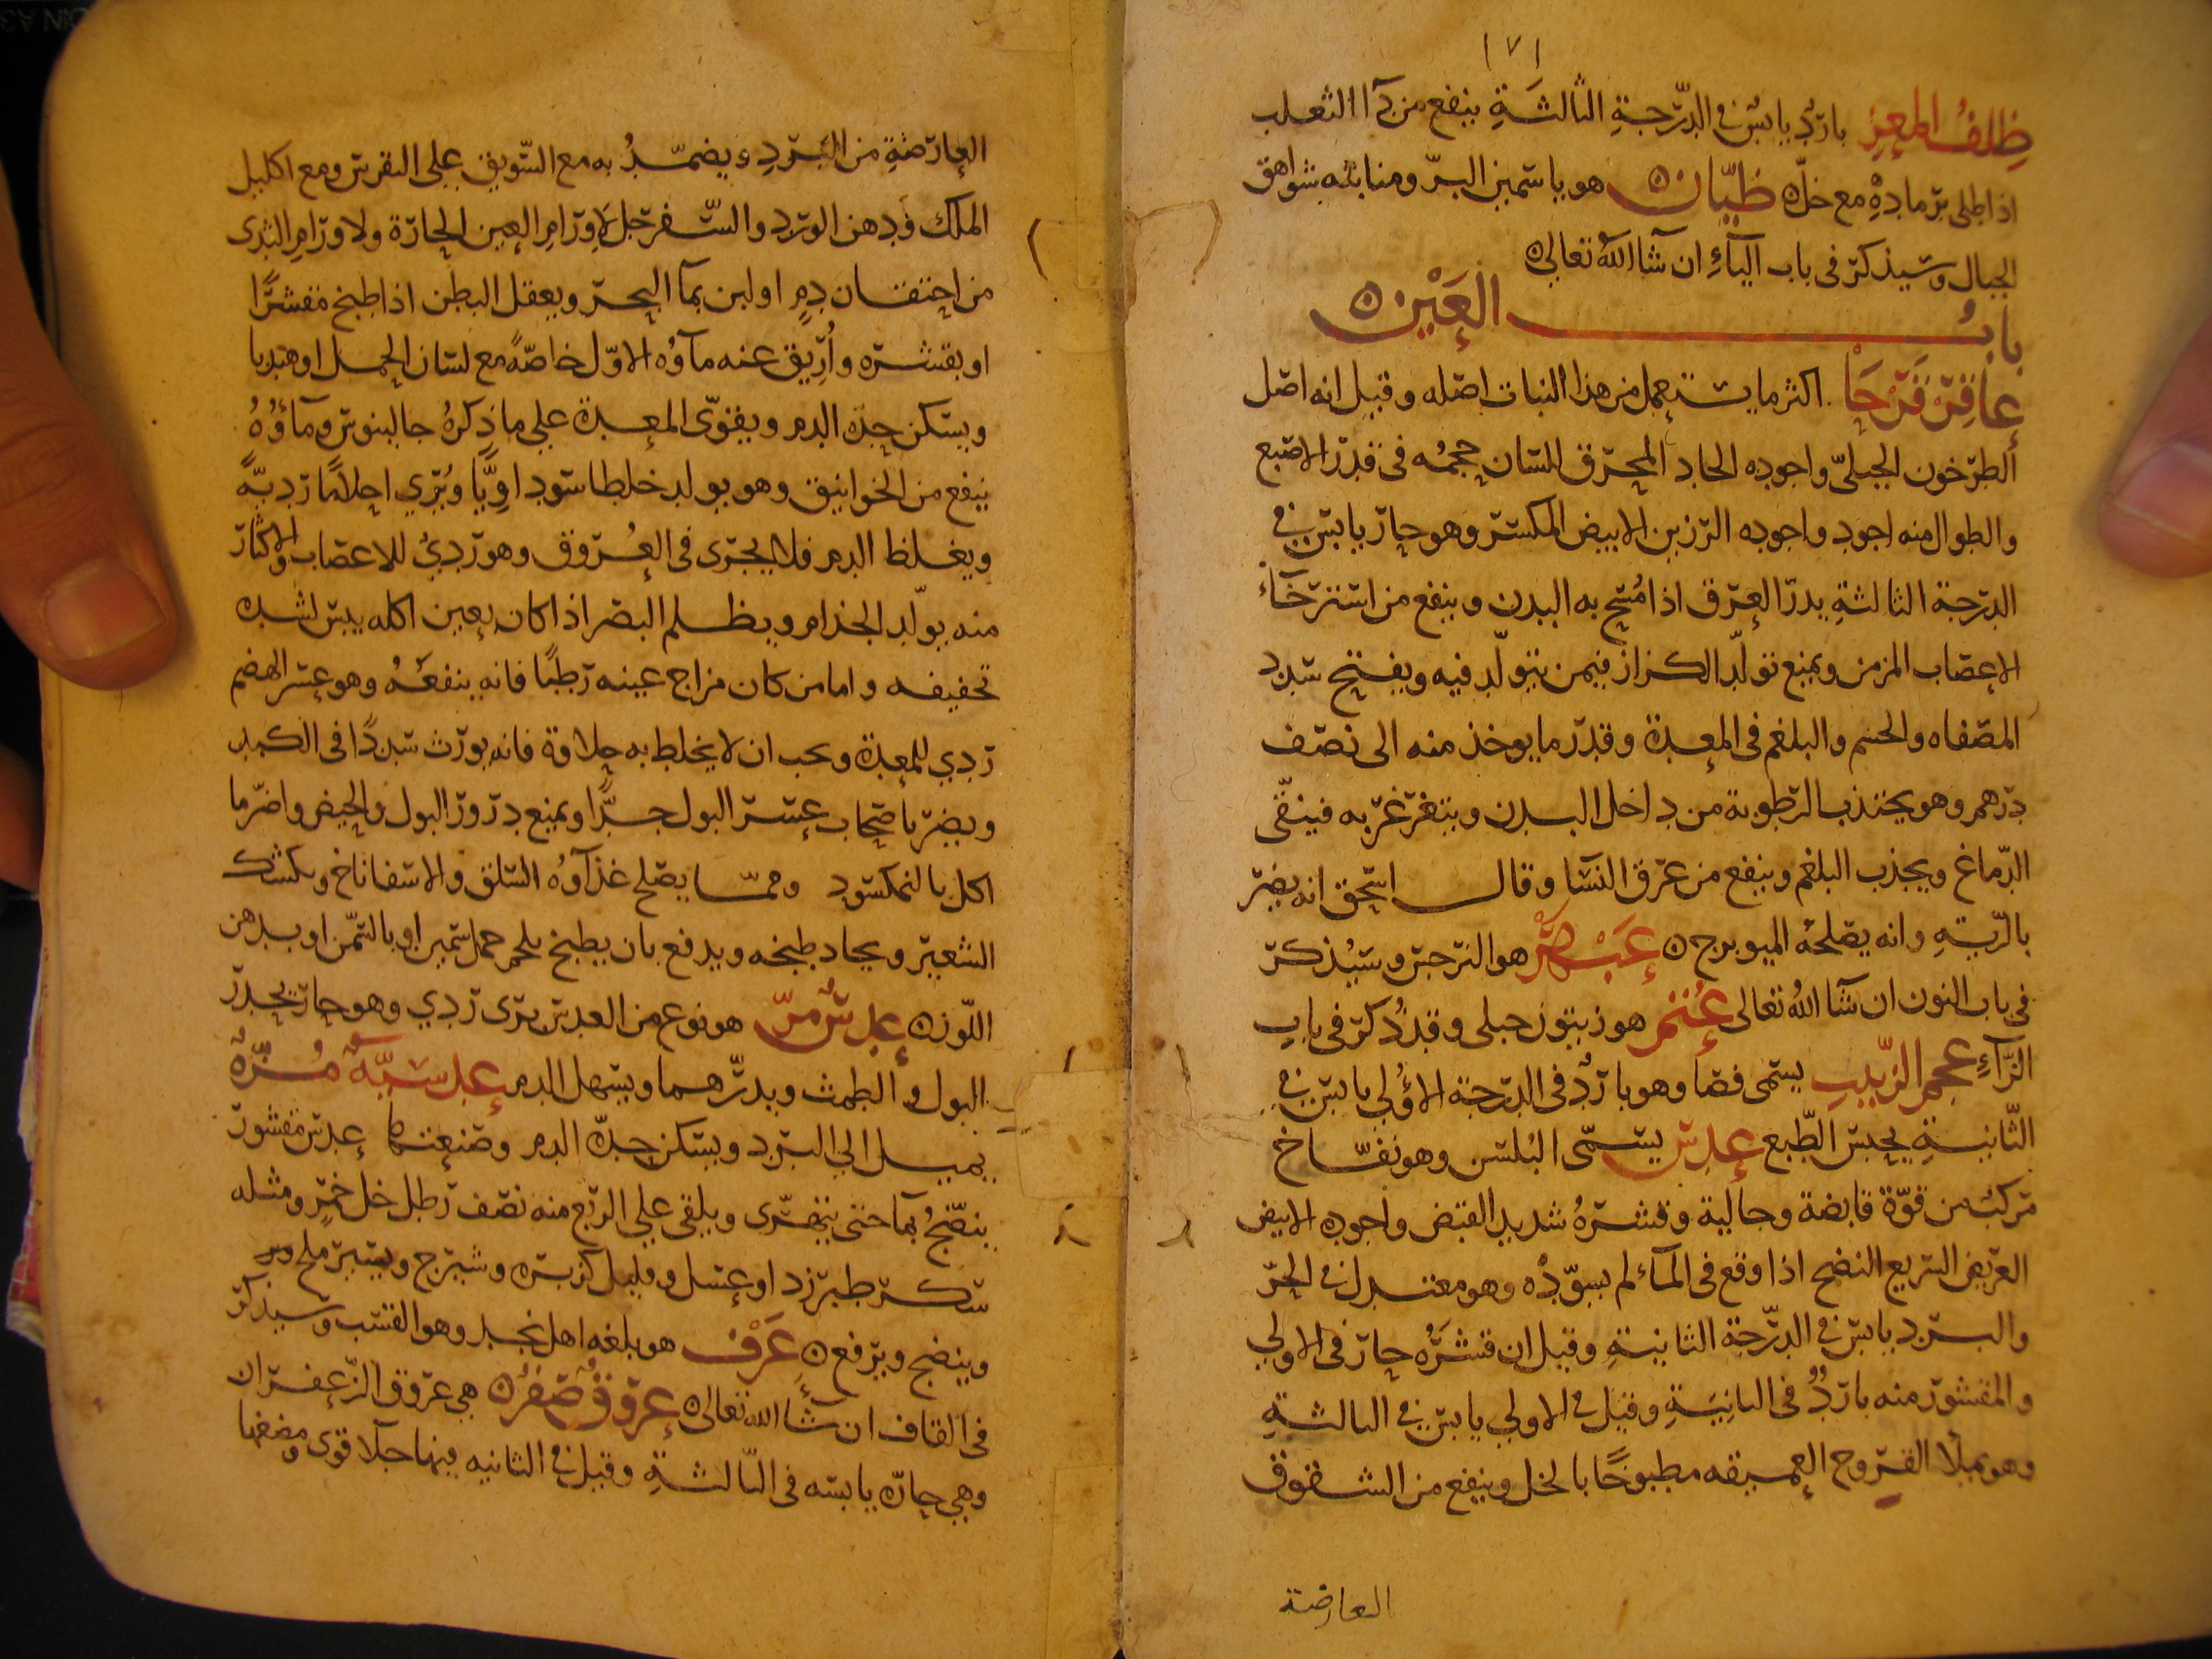 ١٧١
ظلفُ المعز باردٌ يابسٌ في الدّرجةِ الثالثةِ ينفع من دآ الثعلب
اذا طلي برمادهِ مع خلّ ظيّان هو ياسمين البرّ ومنابته شواهق
الجبال وسيذكر في باب اليآءِ ان شآ اللّه تعالى
بابُ العَيْن
عاقِرْ قَرْحَا اكثر ما يستعمل من هذا النبات اصله وقيل انه اصل
الطرخون الجبليّ واجوده الحاد المحرق للسان حجمُه في قدر الاصبع
والطوال منه اجود واجوده الرزين الابيض المكسر وهو حار يابس في
الدرجة الثالثةِ يدرّ العرق اذا مُسح به البدن وينفع من استرخآء
الاعصاب المزمن ويمنع تولّد الكزاز فيمن يتولّد فيه ويفتح سدد
المصفاه والخشم والبلغم في المعدة وقدر ما يوخذ منه الى نصف
درهم وهو يجتذب الرطوبة من داخل البدن ويتغرغر به فينقّى
الدّماغ ويجذب البلغم وينفع من عرق النسا وقال اسحق انه يضر
بالرّيةِ وانه يصلحهُ الميوبزج عَبْهَرْ هو النرجس وسيُذكر
في باب النون ان شآ اللهُ تعالى عُتُم هو زيتون جبلى وقد ذُكر في بابِ
الزّآءِ عجم الزّبيبِ يسمى فصا وهو باردٌ في الدرجة الاوُلي يابس في
الثّانيةِ يحبس الطّبع عدس يسمّى البُلسن وهو نفّاخ
مركبٌ من قوّة قابضة وجالية وقشرهُ شديد القبض واجوده الابيض
العريض السريع النضج اذا وقع في المآء لم يسوّدْه وهو معتدل في الحرّ
والبرد يابس في الدّرجة الثانيةِ وقيل ان قشرَهُ حار في الاولي
والمقشور منه باردٌ في الثانيَةِ وقيل في الاولي يابس في الثالثةِ
وهو يملأ القروح العميقه مطبوخًا بالخل وينفع من الشقوق
العارضة
العارضةِ من البردِ ويضمّدُ به مع السّويق على النقرس ومع اكليل
الملك ودهن الورد والسّفرجل لاورام العين الحارة ولاورام الثدى
من احتقان دمٍ او لبن بمآ البحر ويعقل البطن اذا طبخ مقشرًا
او بقشره واُرِيق عنه مآوُه الاوّل خاصّةً مع لسان الحمل او هندبا
ويسكن حِدّه الدم ويقوّى المعدة على ما ذكرهُ جالينوس ومآؤُهُ
ينفع من الخوانيق وهو يولد خلطا سوداوِيًّا ويُرِي احلامًا رديّة
ويغلظ الدم فلا يجرى في العُروق وهو رديُ للاعصاب والاكثار
منه يولّد الجذام ويظلم البصر اذا كان بعين اكله يبس لشده
تجفيفه واما من كان مزاج عينه رطبًا فانه ينفعَهُ وهو عسر الهضم
ردي للمعدة ويجب ان لا يخلط به حلاوة فانه يورث سددًا في الكبد
ويضر باصحاب عسر البول جدًّا ويمنع درور البول والحيض واضرّ ما
اكل بالنمكسود وممّا يصلح غذآوُه السلق والاسفاناخ وكشك
الشعير ويجاد طبخه ويدفع بان يطبخ بلحم حمل سمين او بالسّمن او بدهن
اللّوز عدسٌ مرّ هو نوع من العدس برى ردي وهو حار يحدر
البول والطمث ويدرّهما ويسهل الدم عدسيّةٌ مُزّةٌ
يميل الي البرد ويسكن حِدّة الدم وصنعتها عدس مقشور
ينضّجُ بمآ حتى يتهرّى ويلقي علي الربع منه نصف رطل خل خمرٍ ومثله
سكر طبرزد او عسل وقليل كزبره وشيرج ويسير ملح
وينضج ويرفع عَرْف هو بلغه اهل نجد وهو القتب وسيذكر
في القاف ان شآ الله تعالى عروقٌ صفرٌ هي عروق الزّعفران
وهي حارّه يابسه في الثّالثةِ وقيل في الثانيه فيها جلا قوى ومضغها